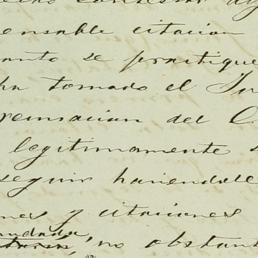 ensable citacion
anto se practique
ha tomado el Ju
recusacion del C
legitimamente
seguir haciendole
nes y citaciones
no obstant